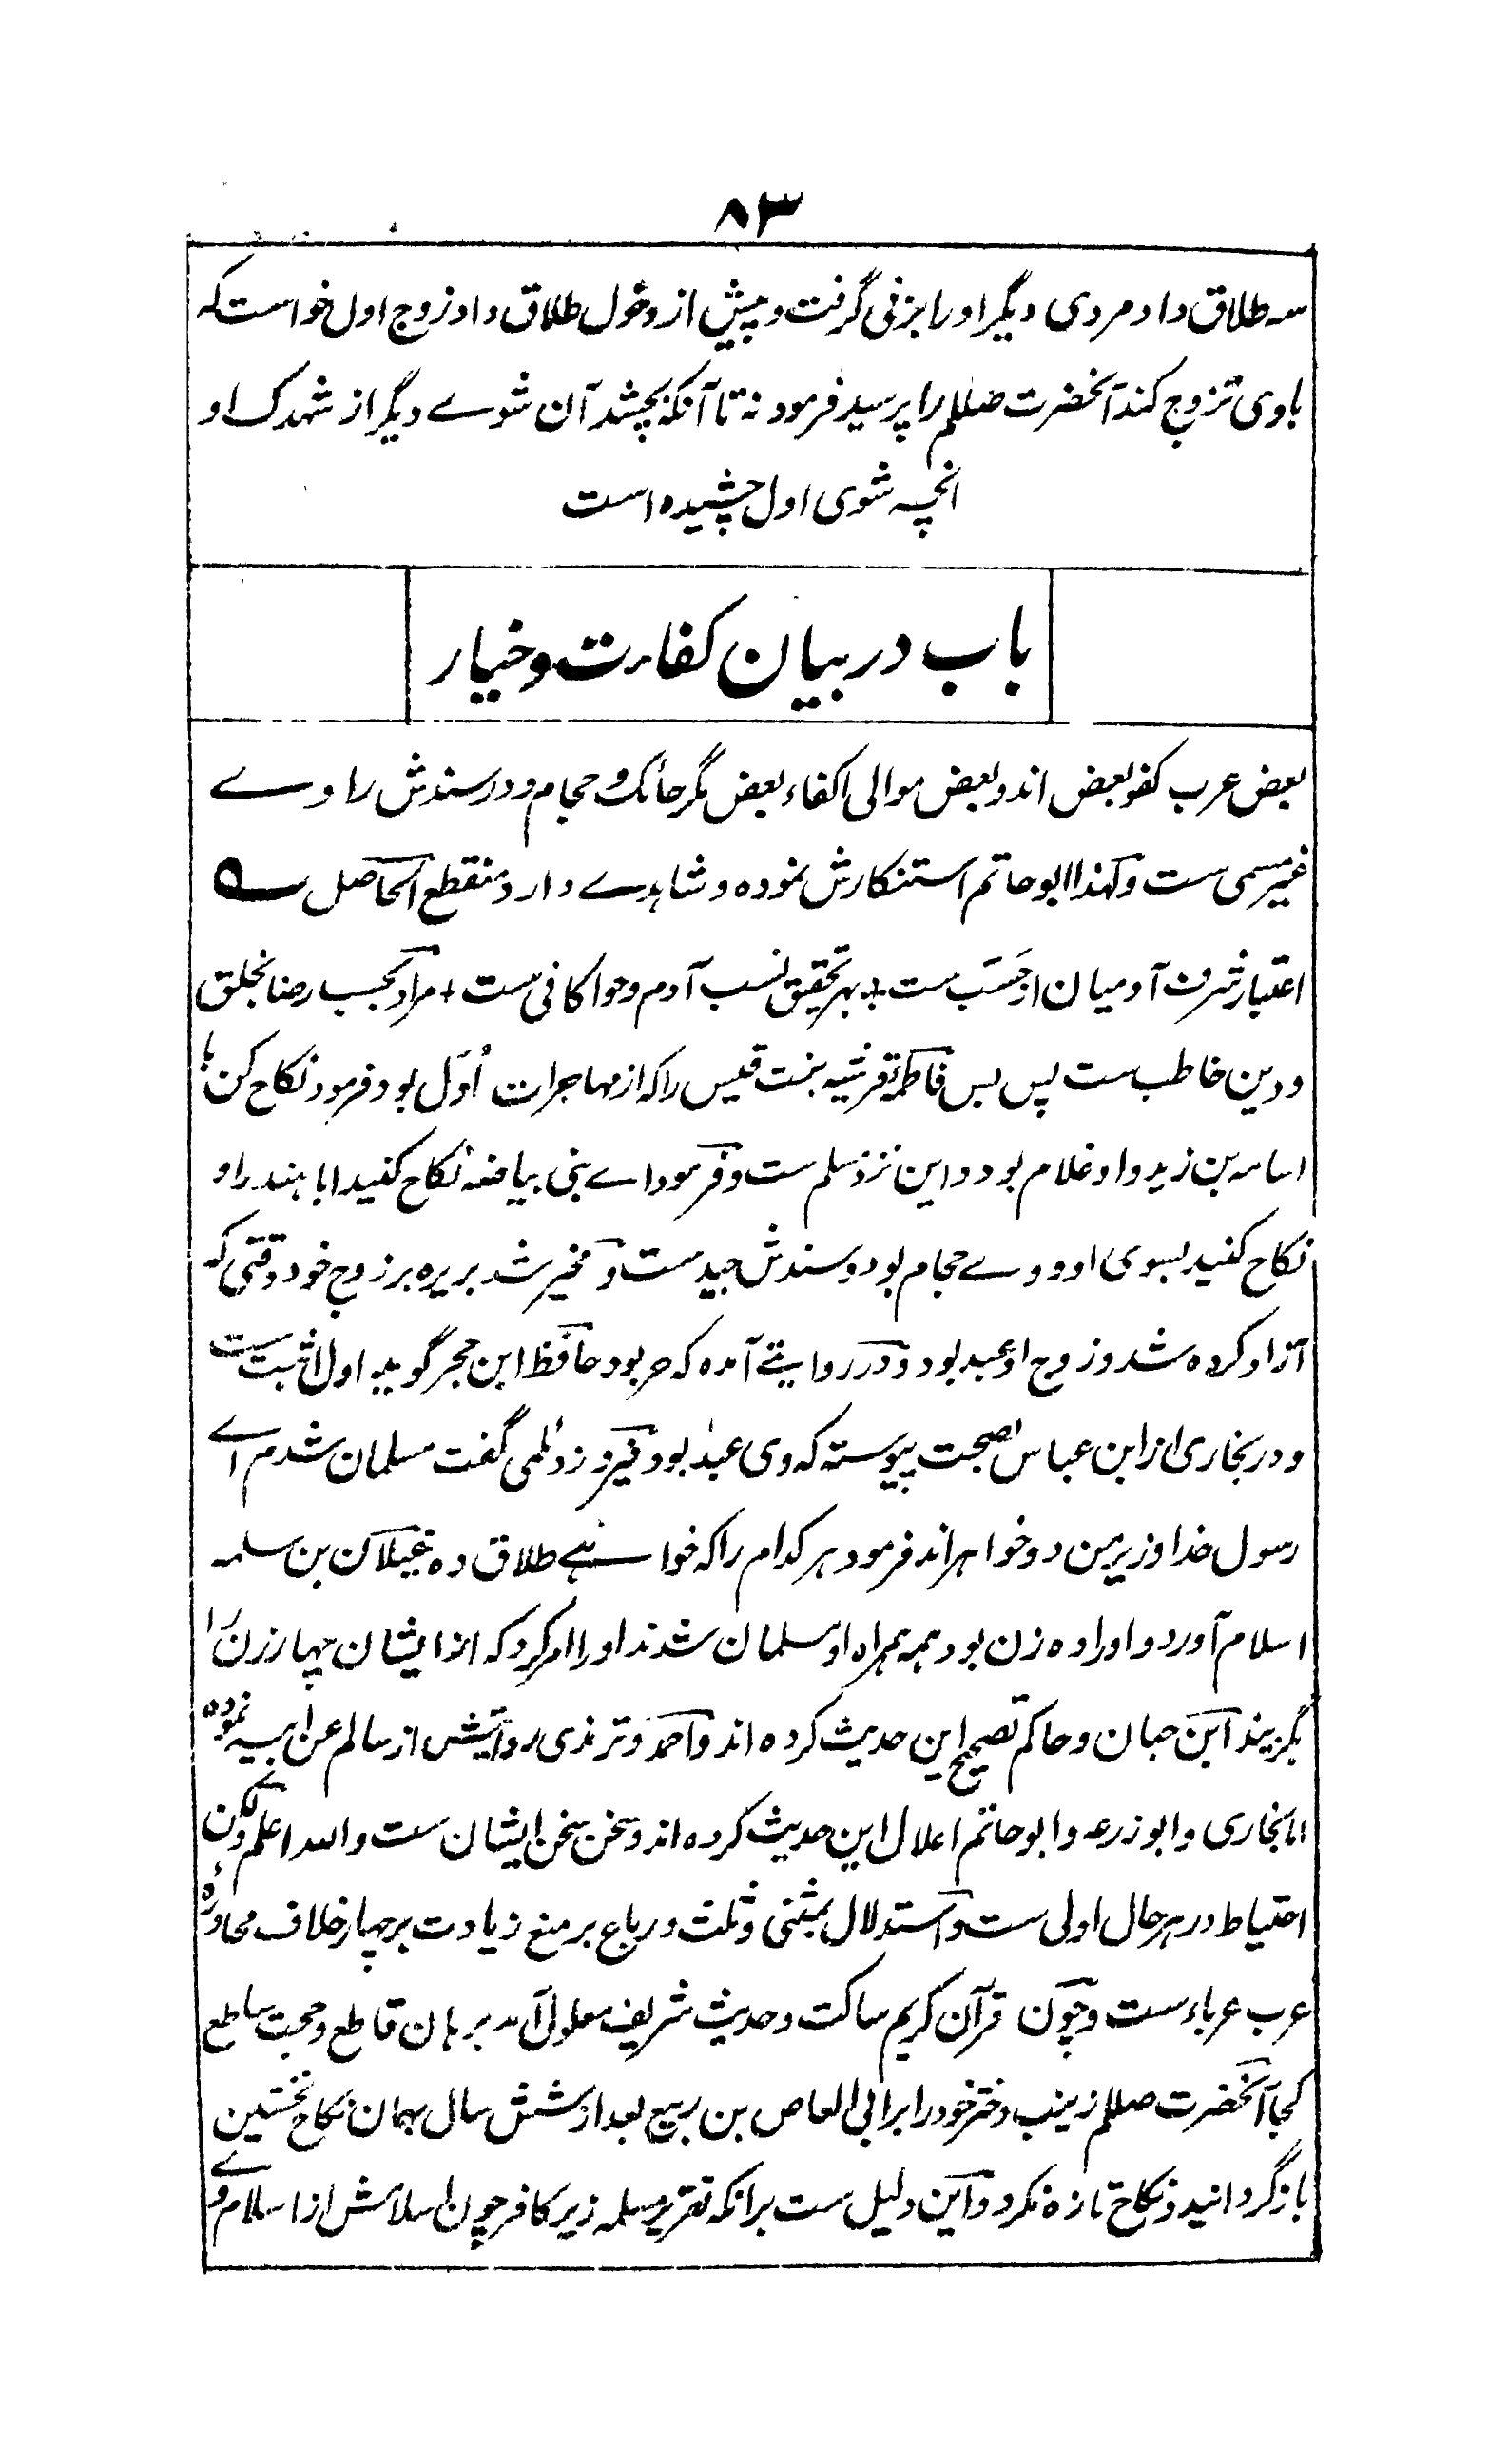 ۸۳
سه طلاق داد مردی دیگر اورا بزنی گرفت و پیش از دخول طلاق داد زوج اول خواست که
باوی تزوج کند آنحضرت صللم را پرسید فرمود نه تا آنکه بچشد آن شوے دیگر از شهدک او
انچه شوی اول چشیده است
باب در بیان کفاءت و خیار
بعض عرب کفو بعض اند و بعض موالی اکفاء بعض مگر حائک و حجام و در سندش راوے
غیر مسمی ست و لهذا ابو حاتم استنکارش نموده و شاهدے دارد منقطع الحاصل ــه
اعتبار شرف آدمیان از حسب ست + بهر تحقیق نسب آدم و حوا کافی ست + مراد بحسب رضا بخلق
و دین خاطب ست پس بس فاطمه قرشیه بنت قیس را که از مهاجرات اُوَل بود فرمود نکاح کن با
اسامه بن زید و او غلام بود و این نزد مسلم ست و فرمود اے بنی بیاضه نکاح کنید ابا هند را و
نکاح کنید بسوی او و وے حجام بود و سندش جید ست و مخیر شد بریره بر زوج خود وقتی که
آزاد کرده شد و زوج او عبد بود و در روایتے آمده که حر بود حافظ ابن حجر گوید اول اثبت ست
و در بخاری از ابن عباس بصحت پیوسته که وی عبد بود فیروز دیلمی گفت مسلمان شدم اے
رسول خدا و زیر من دو خواهر اند فرمود هر کدام را که خواهے طلاق ده غیلان بن سلمه
اسلام آورد و او را ده زن بود همه همراه او مسلمان شدند او را امر کرد که از ایشان چهار زن را
بگزیند ابن حبان و حاکم تصحیح این حدیث کرده اند و احمد و ترمذی روایتش از سالم عن ابیه نموده
اما بخاری و ابو زرعه و ابو حاتم اعلال این حدیث کرده اند و سخن سخن ایشان ست و الله اعلم و لکن
احتیاط در هر حال اولی ست و استدلال بمثنی و ثلث و رباع بر منع زیادت بر چهار خلاف محاوره
عرب عرباء ست و چون قرآن کریم ساکت و حدیث شریف معلول آمد برهان قاطع و حجت ساطع
کجا آنحضرت صللم زینب دختر خود را بر ابی العاص بن ربیع بعد از شش سال بهمان نکاح نخستین
باز گردانید و نکاح تازه نکرد و این دلیل ست بر انکه تقریر مسلمه زیر کافر چون اسلامش از اسلام وے